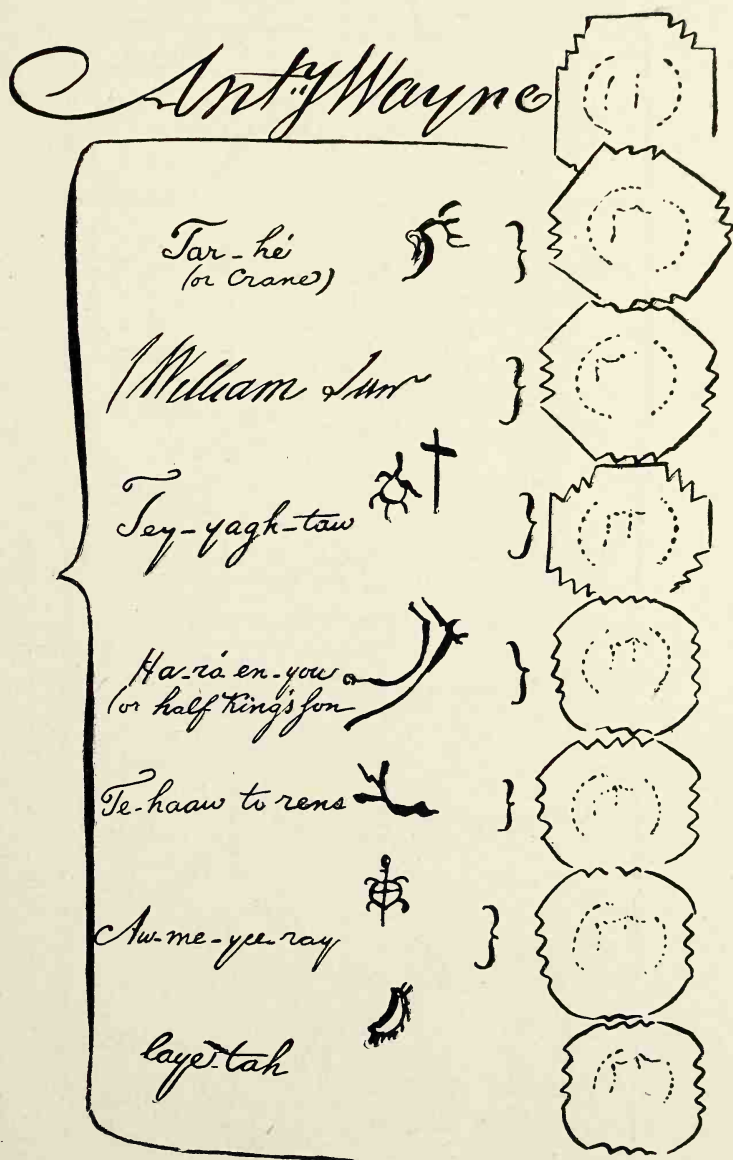 Anty Wayne
Tar-hé
(or Crane)
William
Tey-yagh-taw
Ha-rá en-you
(or half King's son
Te-haaw to rens
Aw-me-yee-ray
Saye-tah